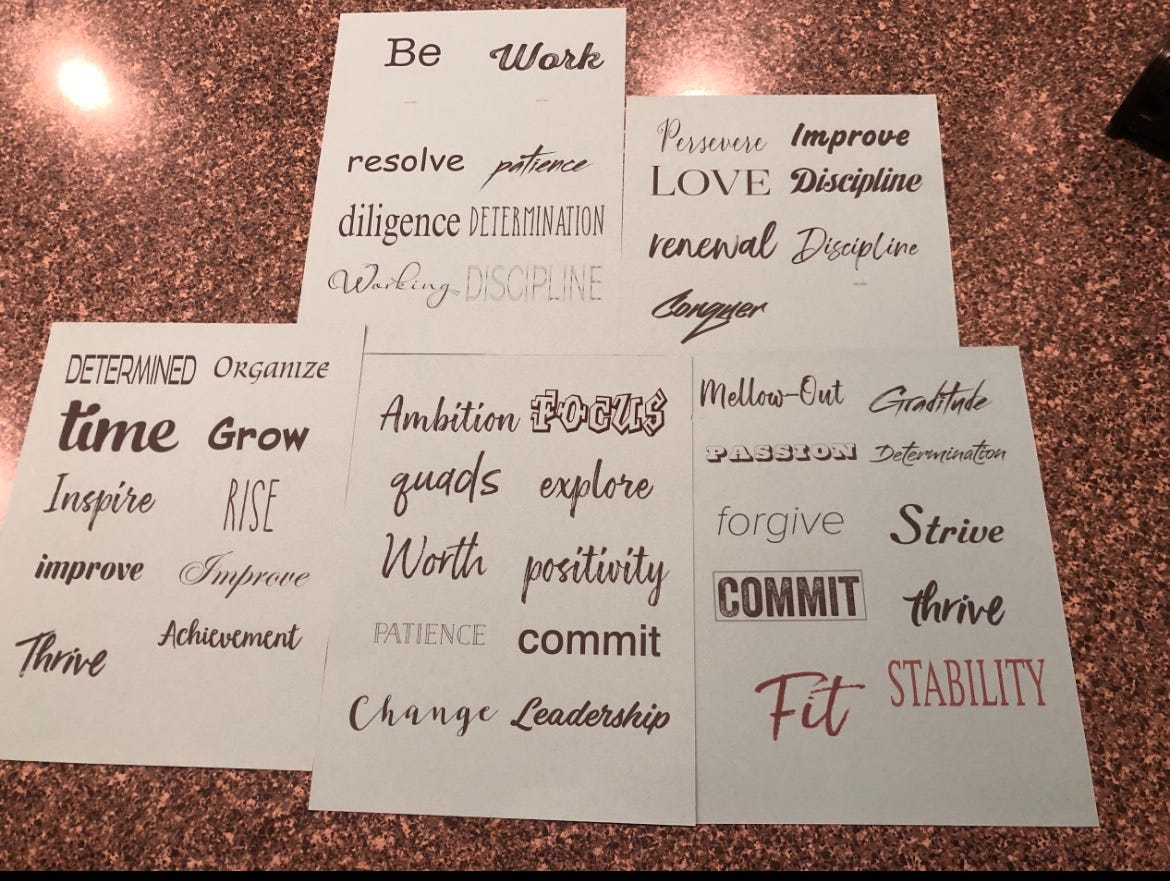 Be Work
resolve patience
diligence DETERMINATION
Working DISCIPLINE
Persevere Improve
LOVE Discipline
renewal Discipline
Conquer
DETERMINED Organize
time Grow
Inspire RISE
improve Improve
Achievement
Thrive
Ambition FOCUS
quads explore
Worth positivity
PATIENCE commit
Change Leadership
Mellow-Out Gratitude
PASSION Determination
forgive Strive
COMMIT thrive
Fit STABILITY